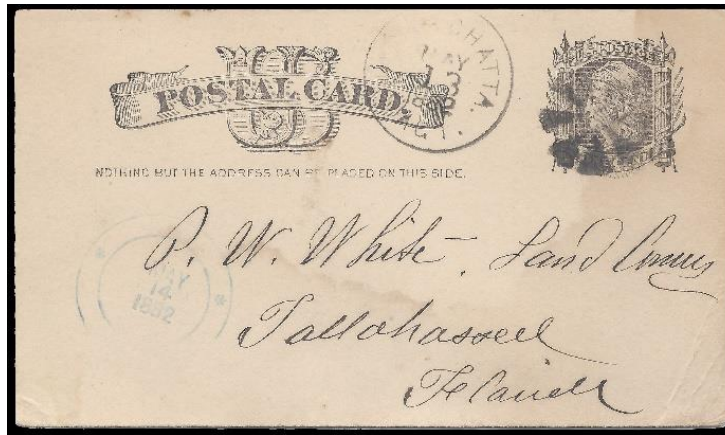 U S
POSTAL CARD.
NOTHING BUT THE ADDRESS CAN BE PLACED ON THIS SIDE.
MAY
13
MAY
14
1882
P. W. White, Land Comr
Tallahassee
Florida